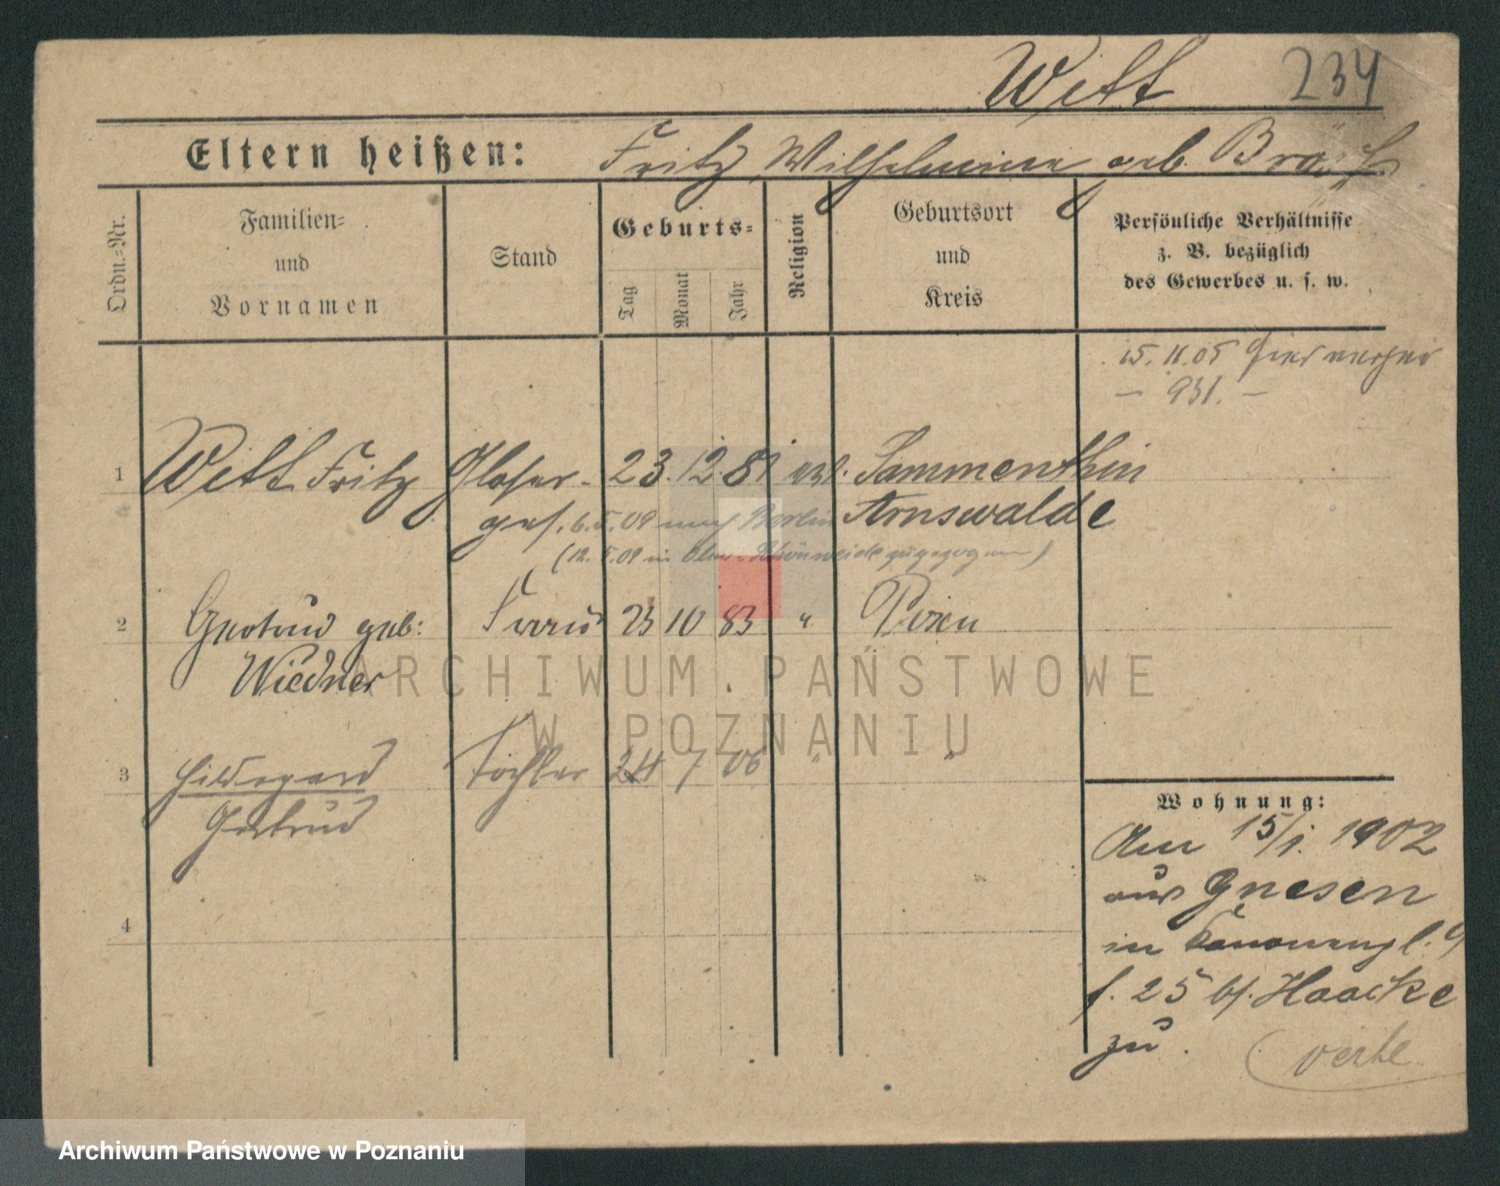 Witt 234
Eltern heißen: Fritz, Wilhelmine geb. Bräuß
Ordn.-Nr.
Familien-
und
Vornamen
Stand
Geburts-
Tag
Monat
Jahr
Religion
Geburtsort
und
Kreis
Persönliche Verhältnisse
z. B. bezüglich
des Gewerbes u. s. w.
15. 11. 05 hier
— 931. —
1 Witt Fritz Glaser- 23. 12. 81 evl. Sammenthin
ges. 6. 5. 09 nach Berlin Arnswalde
(12. 5. 09 in Ober-Schöneweide zugezogen)
2 Gertrud geb: Frau 23 10 83 " Posen
Wiedner
3 Hildegard Tochter 24 7 06 " "
Gertrud
4
Wohnung:
Am 15/1. 1902
aus Gnesen
in Kanonenpl. 9
f. 25 bf. Haacke
zu.
verhe
ARCHIWUM PAŃSTWOWE
W POZNANIU
Archiwum Państwowe w Poznaniu